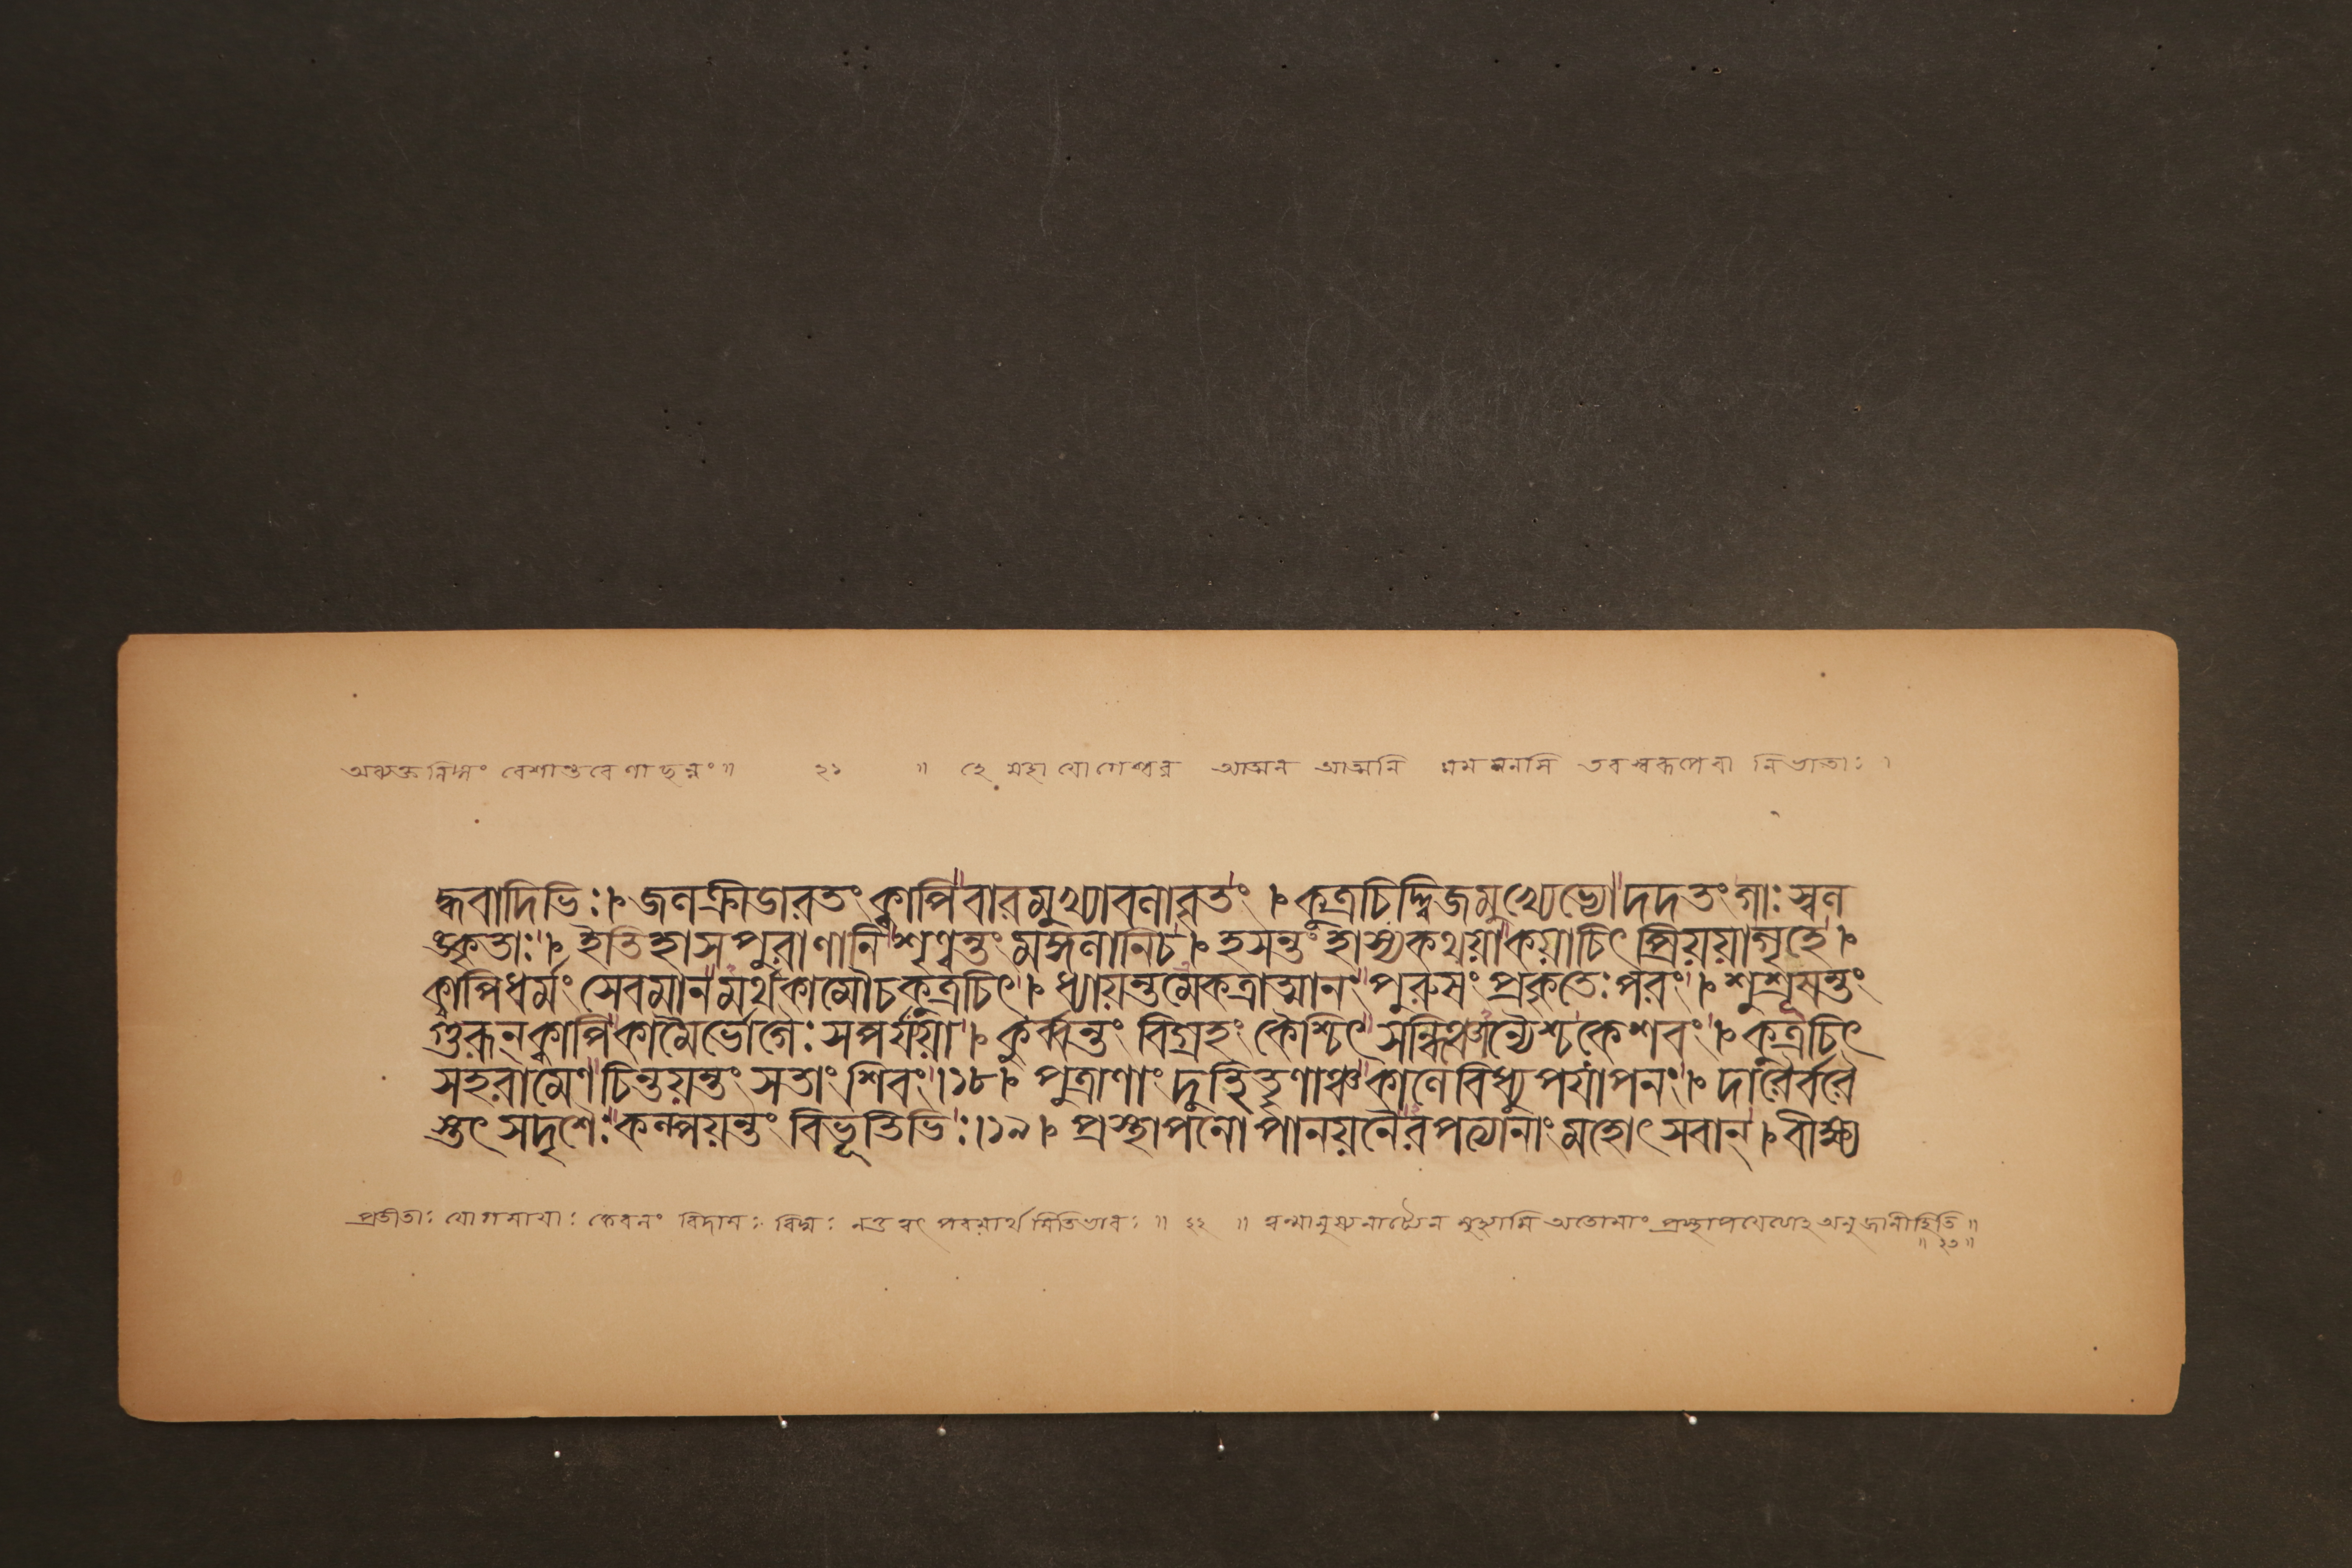 অব্যক্ত নিঙ্গং বেশান্তরেণাছন্নং॥ ২১ ॥ হে মহাযোগেশ্বর আত্মন আত্মনি মম মনসি তব স্বরূপেবা নির্ভাতাঃ ।
দ্ধবাদিভিঃ। জলক্রীডারতং ক্বাপি বারমুখ্যাবলাবৃতং । কুত্রচিদ্দ্বিজমুখ্যেভ্যো দদতং গাঃ স্বল
ঙ্কৃতাঃ। ইতিহাসপুরাণানি শৃণ্বন্তং মঙ্গলানিচ। হসন্তং হাস্যকথয়া কয়াচিৎ প্রিয়য়াগৃহে।
ক্বাপিধর্ম্মং সেবমানমর্থকামৌচকুত্রচিৎ। ধ্যায়ন্তমেকত্রাত্মানং পুরুষং প্রকৃতেঃ পরং। শুশ্রূষন্তং
গুরূন্ ক্বাপি কামৈর্ভোগৈঃ সপর্য্যয়া। কুর্ব্বন্তং বিগ্রহং কৈশ্চিৎ সন্ধিঞ্চান্যৈশ্চকেশবং। কুত্রচিৎ
সহরামেণ চিন্তয়ন্তং সতাং শিবং।১৮। পুত্রাণাং দুহিতৄণাঞ্চ কালে বিধ্যুপযাপনং। দারৈর্বরৈ
স্তৎ সদৃশৈঃ কল্পয়ন্তং বিভূতিভিঃ।১৯। প্রস্থাপনোপানয়নৈরপত্যানাং মহোৎসবান্। বীক্ষ্য
প্রতীতাঃ যোগমায়াঃ কেবলং বিদামঃ বিদ্মঃ নতু ত্বৎ পরমার্থমিতিভাবঃ ॥ ২২ ॥ ত্বন্মানুষ্যনাট্যেন মুহ্যামি অতোমাং প্রস্থাপয়েত্যাহ অনুজানীহিতি॥
॥ ২৩॥